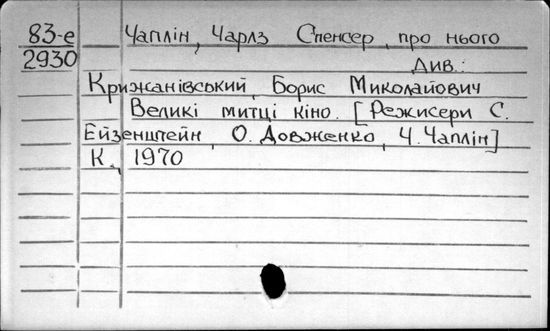 83-е Чаплін, Чарлз Спенсер, про нього
2930 див.:
Крижанівський, Борис Миколайович
Великі митці кіно. [Режисери С.
Ейзенштейн, О. Довженко, Ч. Чаплін]
К., 1970